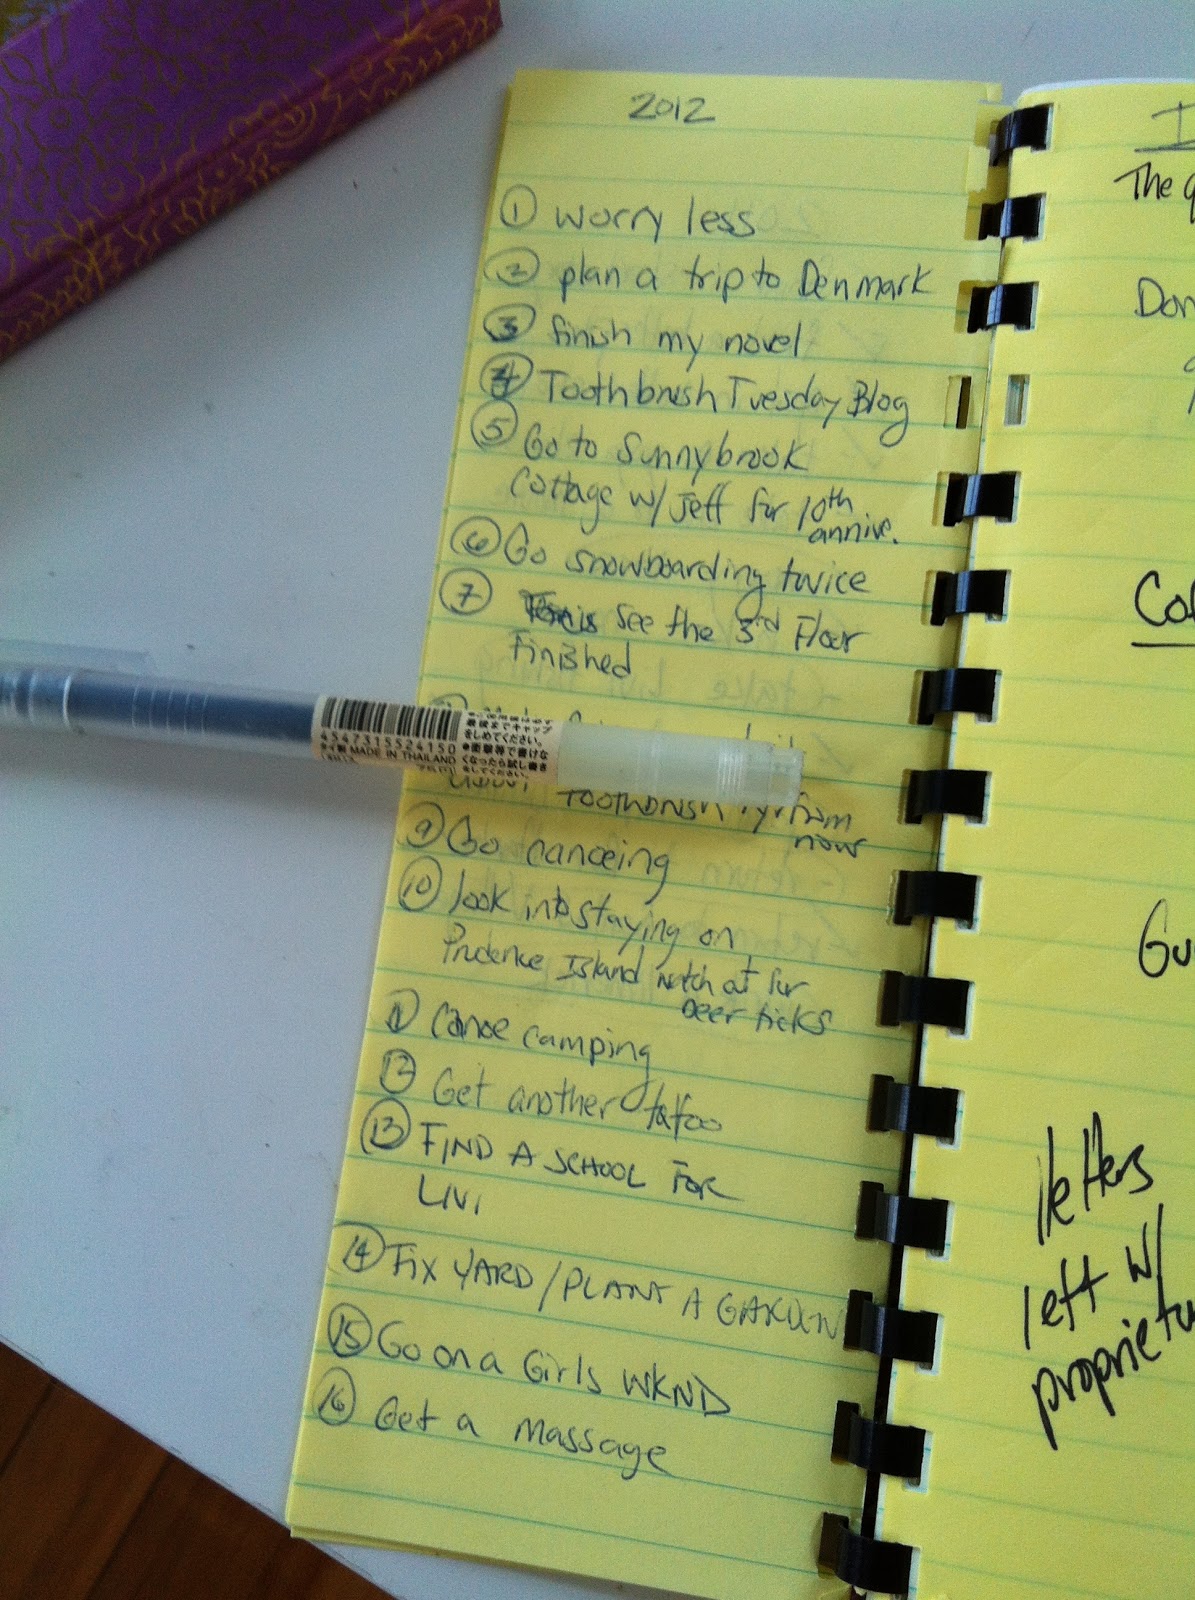 2012
① worry less
② plan a trip to Denmark
③ finish my novel
④ Toothbrush Tuesday Blog
⑤ Go to Sunnybrook
Cottage w/ Jeff for 10th
annive.
⑥ Go snowboarding twice
⑦ see the 3rd Floor
Finished
toothbrush 1 yr from
now
⑨ Go canoeing
⑩ look into staying on
Prudence Island watch out for
Deer ticks
⑪ Canoe camping
⑫ Get another tattoo
⑬ FIND A SCHOOL FOR
LIVI
⑭ FIX YARD / PLANT A GARDEN
⑮ Go on a Girls WKND
⑯ Get a massage
4547315524150
タイ製 MADE IN THAILAND
最後までキャップ
をしめてください。
●衝撃等で書けな
くなったら試し書き
をしてください。
The
letters
left w/